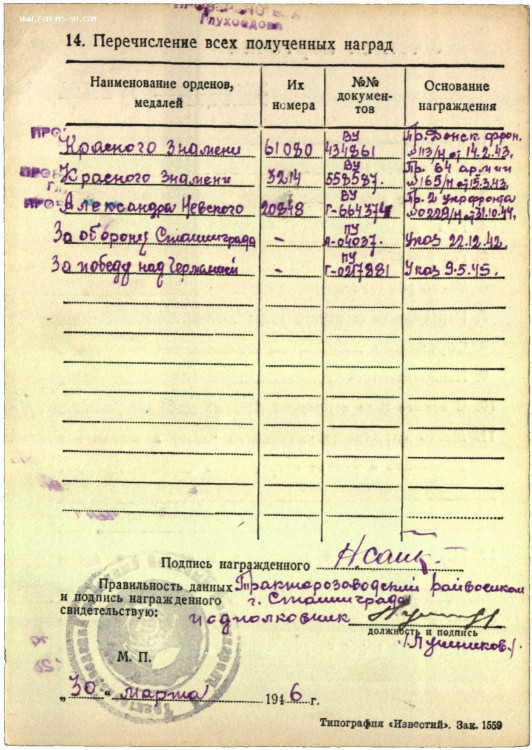 www.forums-su.com
Глуховдова
14. Перечисление всех полученных наград
Наименование орденов, медалей
Их номера
№№ документов
Основание награждения
Красного Знамени 61080 ВУ 434861 Пр. Донск. фрон. №113/н от 14.2.43.
Красного Знамени 3214 ВУ 558587. Пр. 64 армии №165/н от 15.3.43.
Александра Невского 20848 ВУ Г-664374 Пр. 2 укрфронта №0229/н от 31.10.44.
За оборону Сталинграда – ПУ Я-04037. Указ 22.12.42.
За победу над Германией – ПУ Г-0217881 Указ 9.5.45.
Подпись награжденного
Правильность данных Тракторозаводский райвоенком
и подпись награжденного г. Сталинграда
свидетельствую: подполковник
должность и подпись
/Лучников/
М. П.
"30" марта 1946 г.
Типография «Известий». Зак. 1559